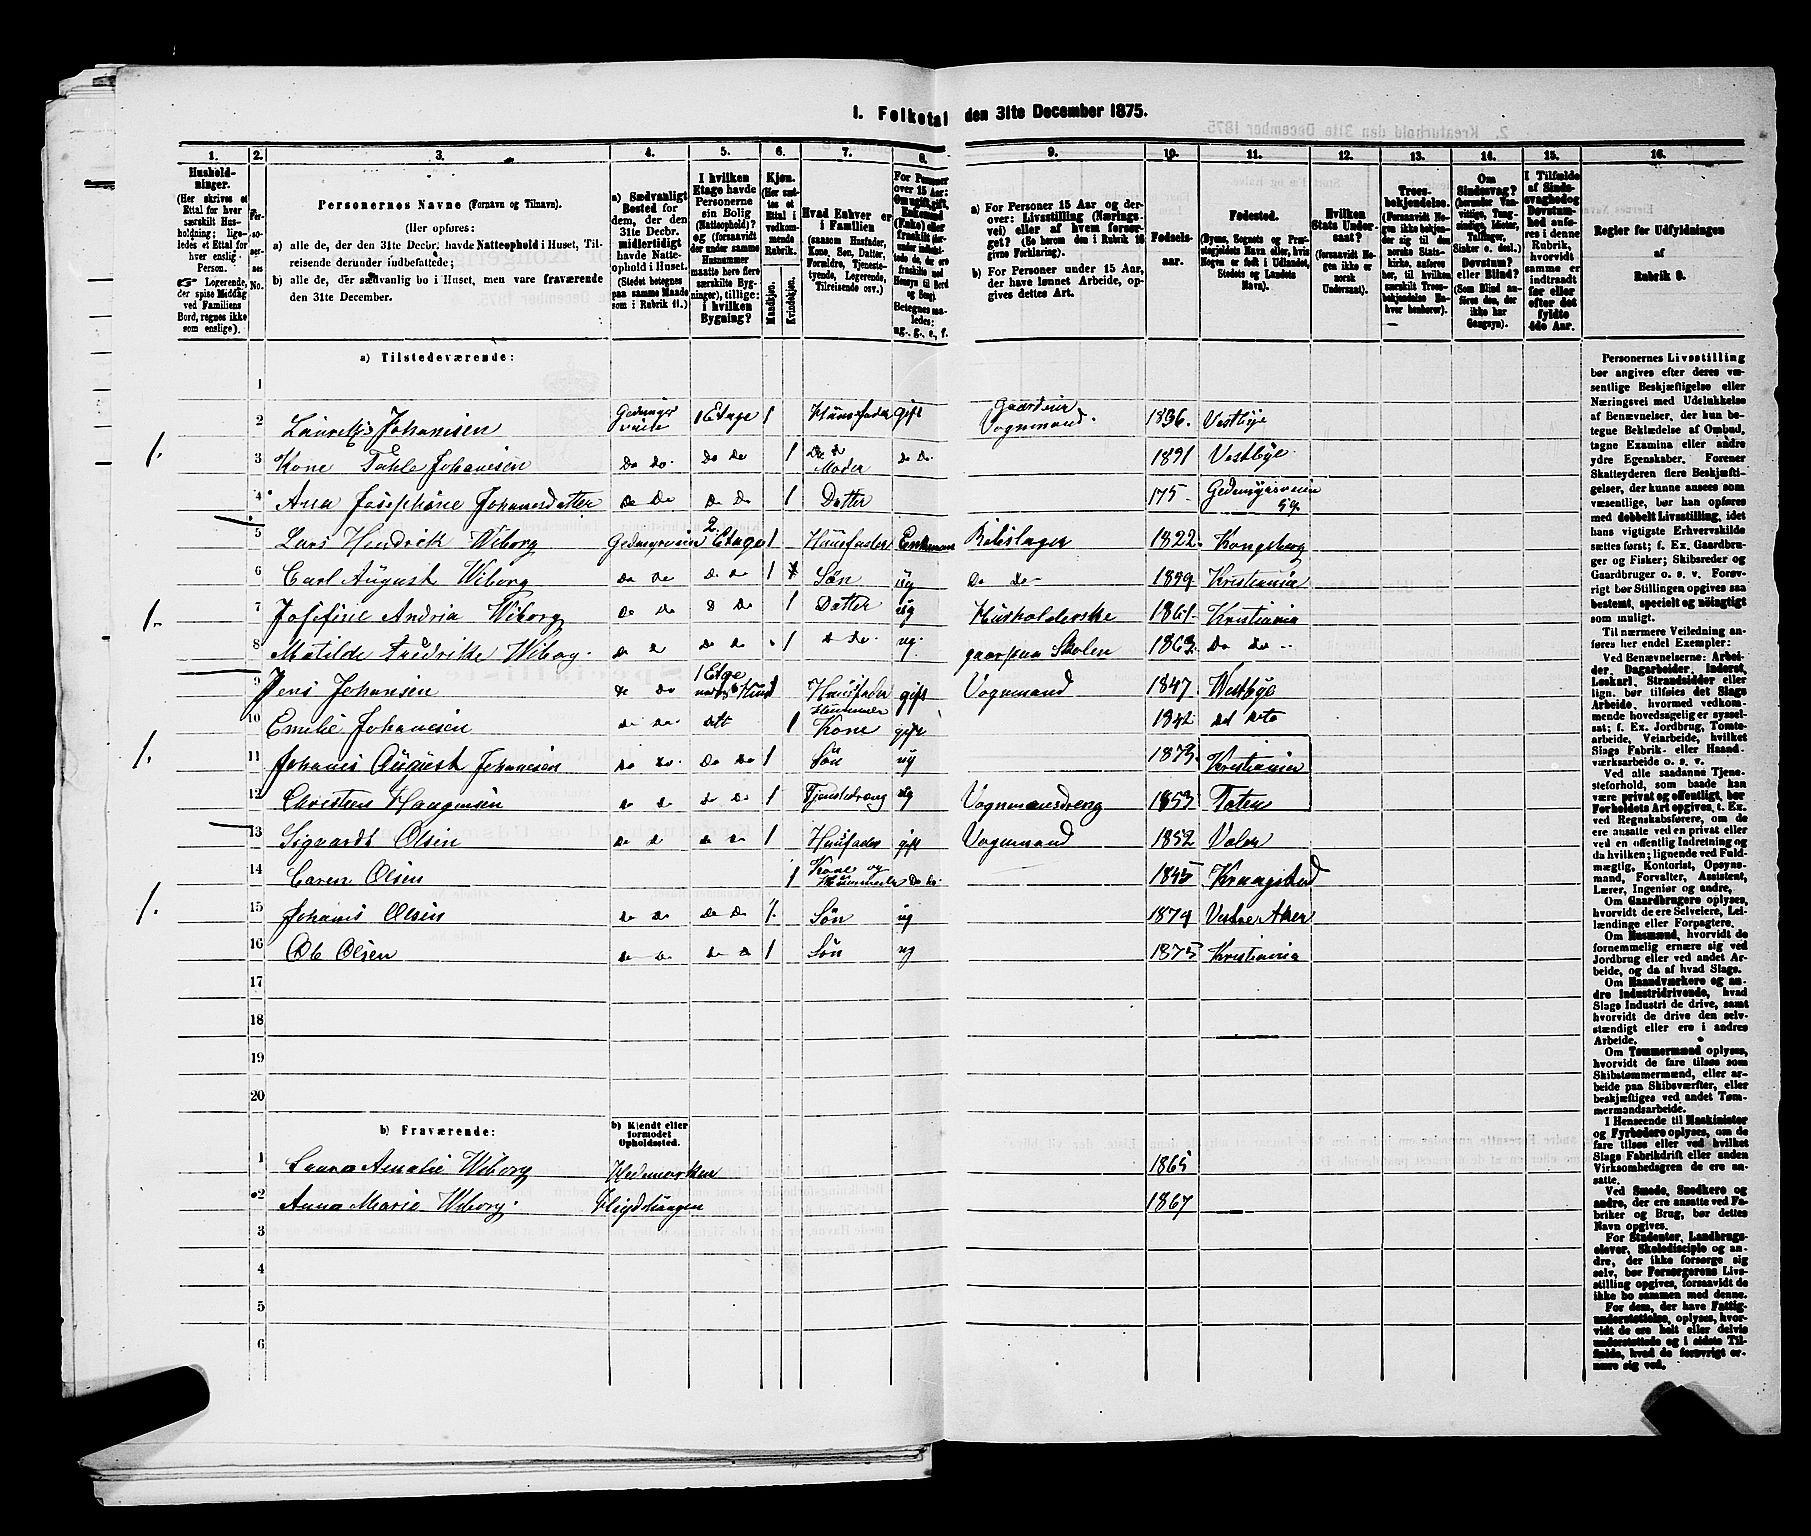 1. Folketal den 31te December 1875.
1. 2. 3. 4. 5. 6. 7. 8. 9. 10. 11. 12. 13. 14. 15. 16.
Husholdninger.
(Her skrives et Ettal for hver særskilt Husholdning; ligeledes et Ettal for hver enslig Person.
☞ Logerende, der spise Middag ved Familiens Bord, regnes ikke som enslige).
Personernes No.
Personernes Navne (Fornavn og Tilnavn).
(Her opføres:
a) alle de, der den 31te Decbr. havde Natteophold i Huset, Tilreisende derunder indbefattede;
b) alle de, der sædvanlig bo i Huset, men vare fraværende den 31te December.
a) Sædvanligt Bosted for dem, der den 31te Decbr. midlertidigt havde Natteophold i Huset. (Stedet betegnes paa samme Maade som i Rubrik 11.)
I hvilken Etage havde Personerne sin Bolig (Natteophold)? og (forsaavidt der under samme Husnummer maatte høre flere særskilte Bygninger), tillige: i hvilken Bygning?
Kjøn.
(Her sættes et Ettal i vedkommende Rubrik.
Mandkjøn. Kvindekjøn.
Hvad Enhver er i Familien
(saasom Husfader, Kone, Søn, Datter, Forældre, Tjenestetyende, Logerende, Tilreisende osv.)
a) For Personer 15 Aar og derover: Livsstilling (Næringsvei) eller af hvem forsørget? (Se herom den i Rubrik 16 givne Forklaring).
b) For Personer under 15 Aar, der have lønnet Arbeide, opgives dettes Art.
Fødselsaar.
Fødested.
(Byens, Sognets og Præstegjeldets Navn, eller, hvis Nogen er født i Udlandet, Stedets og Landets Navn).
Hvilken Stats Undersaat?
(Forsaavidt Nogen ikke er norsk Undersaat).
Troesbekjendelse.
(Forsaavidt Nogen ikke bekjender sig til den norske Statskirke, anføres her, til hvilken særskilt Troesbekjendelse Enhver henhører).
Om Sindssvag?
(herunder Vanvittige, Tungsindige, Idioter, Tullinger, Sinker o. desl.)
Døvstum? eller Blind?
(Som Blind anføres den, der ikke har Gangsyn).
I Tilfælde af Sindssvaghed og Døvstumhed anføres i denne Rubrik, hvorvidt samme er indtraadt før eller efter det fyldte 4de Aar.
Regler for Udfyldningen
af
Rubrik 9.
a) Tilstedeværende:
1
2 Johanisen 1 Etage 1 Huusfader gift Gaardeier Vognmand. 1836. Vestbye
1. 3 Kone Johanisen Do Do. Do Do 1 Moder Do Do. Vestbye
4 Ana Josephine Johansdatter De De De De 1 Datter 175 Gedemyrsveien
5 Lars Hendrik Wiborg Gedemyrveien 2 Etage 1 Huusfader Enkemand 1822. Kongsberg
6 Carl August Wiborg Do De De De 1 Søn ug Do De 1859 Kristiania
1. 7 Josefine Andria Wiborg De De De 1 Datter ug Husholderske 1861. Kristiania
8 Matilde Wiborg. De De De De 1 De De. ug. gaar paa Skolen 1863. Do Do
9 Jens Johansen De Do 1 Etge Huusfader gift Vognmand 1847. Westbye
10 Emelie Johanesen De De 1 Kone gift 1842
1. 11 Johanis August Johanesen Do Do. Do Do 1 Søn ug 1873. Kristiania
12 Christens Haagensen De De De De 1 Tjenstedreng ug Vognmansdreng 1853. Toten
13 Sigvardt Olsen De De De De 1 Huusfader gift Vognmand 1852 Valer
14 Caren Olsen 1 Kone og Do Do. 1845 Kraagstad
1. 15 Johanis Olsen De De De De 1. Søn ug 1874 Vestre Aker
16 Ole Olsen De De. De De 1 Søn ug 1875 Kristiania
17
18
19
20
b) Fraværende: b) Kjendt eller formodet Opholdssted.
1 Laura Amalie Wiborg Hedemarken 1865
2 Anna Marie Wiborg. 1867
3
4
5
6
Personernes Livsstilling bør angives efter deres væsentlige Beskjæftigelse eller Næringsvei med Udelukkelse af Benævnelser, der kun betegne Beklædelse af Ombud, tagne Examina eller andre ydre Egenskaber. Forener Skatteyderen flere Beskjæftigelser, der kunne ansees som væsentlige, bør han opføres med dobbelt Livsstilling, idet hans vigtigste Erhvervskilde sættes først; f. Ex. Gaardbruger og Fisker; Skibsreder og Gaardbruger o. s. v. Forøvrigt bør Stillingen opgives saa bestemt, specielt og nøiagtigt som muligt.
Til nærmere Veiledning anføres her endel Exempler:
Ved Benævnelserne: Arbeider, Dagarbeider, Inderst, Løskarl, Strandsidder eller lign. bør tilføies det Slags Arbeide, hvormed vedkommende hovedsagelig er sysselsat; f. Ex. Jordbrug, Tomtearbeide, Veiarbeide, hvilket Slags Fabrik- eller Haandværksarbeide o. s. v.
Ved alle saadanne Tjenesteforhold, som baade kan være privat og offentligt, bør Forholdets Art opgives, t. Ex. ved Regnskabsførere, om de ere ansatte ved en privat eller ved en offentlig Indretning og da hvilken; lignende ved Fuldmægtig, Kontorist, Opsynsmand, Forvalter, Assistent, Lærer, Ingeniør og andre.
Om Gaardbrugere oplyses, hvorvidt de ere Selveiere, Leilændinge eller Forpagtere.
Om Husmænd, hvorvidt de fornemmelig ernære sig ved Jordbrug eller ved andet Arbeide, og da af hvad Slags.
Om Haandværkere og andre Industridrivende, hvad Slags Industri de drive, samt hvorvidt de drive den selvstændigt eller ere i andres Arbeide.
Om Tømmermænd oplyses, hvorvidt de fare tilsøs som Skibstømmermænd, eller arbeide paa Skibsværfter, eller beskjæftiges ved andet Tømmermandsarbeide.
I Henseende til Maskinister og Fyrbødere oplyses, om de fare tilsøs eller ved hvilket Slags Fabrikdrift eller anden Virksomhedsgren de ere ansatte.
Ved Smede, Snedkere og andre, der ere ansatte ved Fabriker og Brug, bør dettes Navn opgives.
For Studenter, Landbrugselever, Skoledisciple og andre, der ikke forsørge sig selv, bør Forsørgerens Livsstilling opgives, forsaavidt de ikke bo sammen med denne.
For dem, der have Fattigunderstøttelse, oplyses, hvorvidt de ere helt eller delvis understøttede og i sidste Tilfælde, hvad de forøvrigt ernære sig ved.